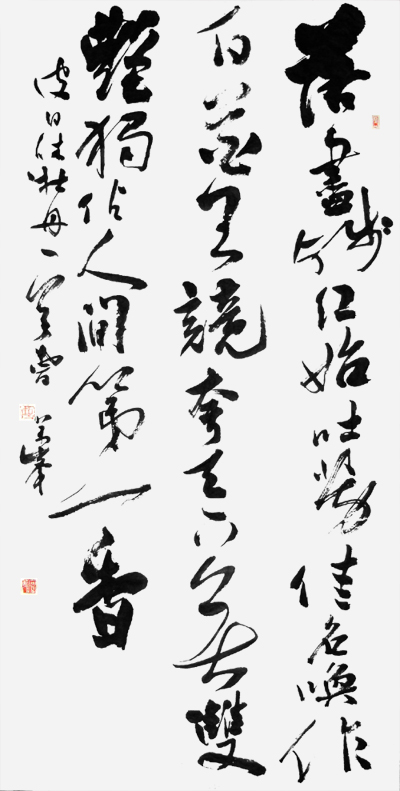 落盡殘紅始吐芳佳名喚作
百花王競夸天下無雙
艷獨佔人間第一香
皮日休牡丹一